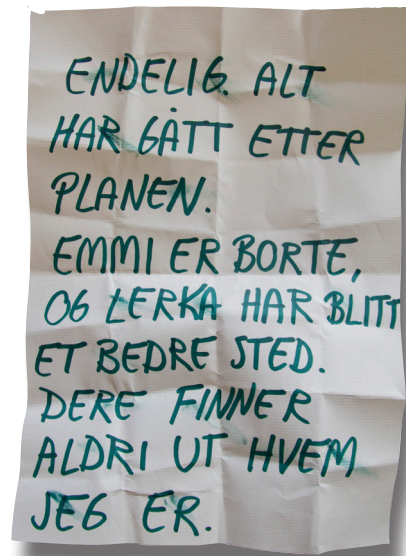 ENDELIG. ALT
HAR GÅTT ETTER
PLANEN.
EMMI ER BORTE,
OG LERKA HAR BLITT
ET BEDRE STED.
DERE FINNER
ALDRI UT HVEM
JEG ER.